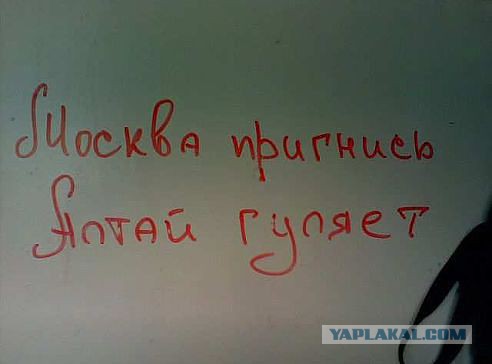 Москва пригнись
Алтай гуляет
YAPLAKAL.COM